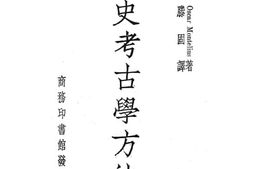 Oscar Montelius 著
譯
史考古學方
商務印書館發